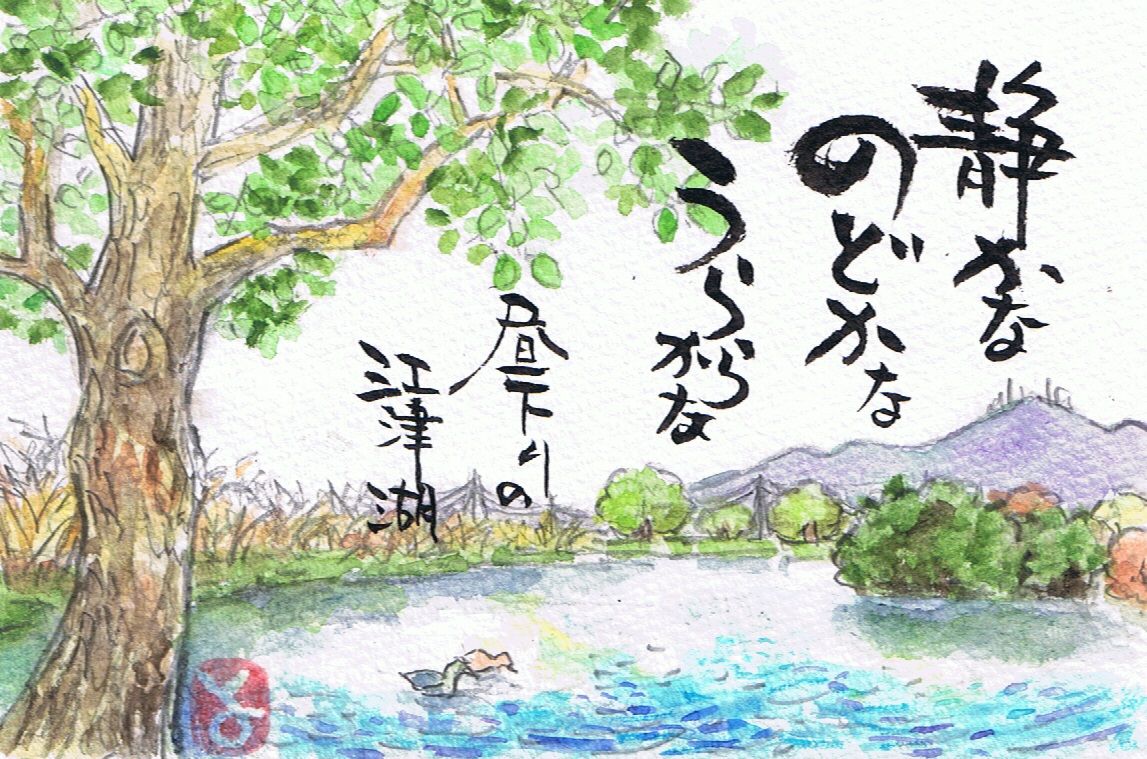 静かな
のどかな
うららかな
昼下りの
江津湖
とし